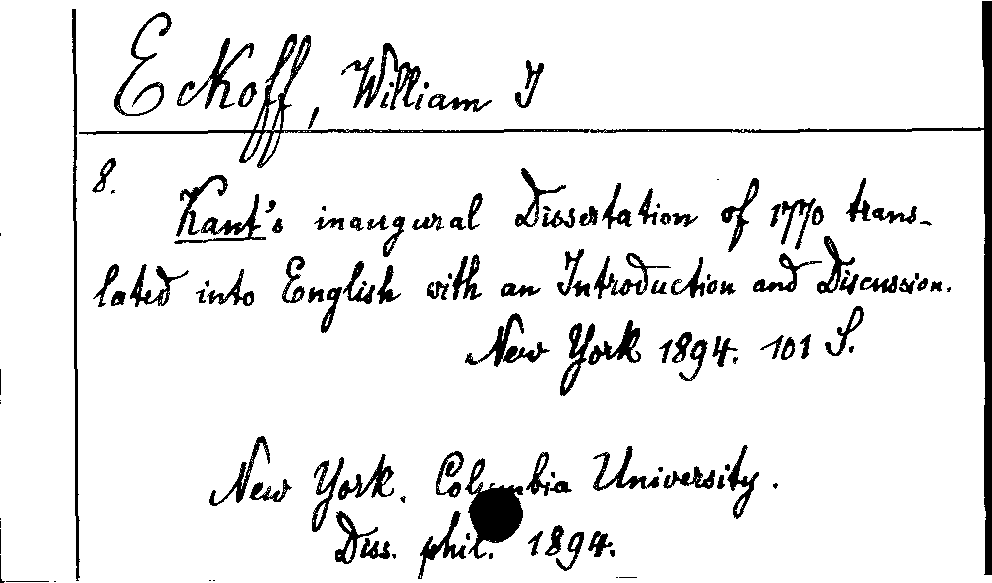 Eckoff, William J
8.
Kant's inaugural Dissertation of 1770 trans-
lated into English with an Introduction and Discussion.
New York 1894. 101 S.
New York. Columbia University.
Diss. phil. 1894.